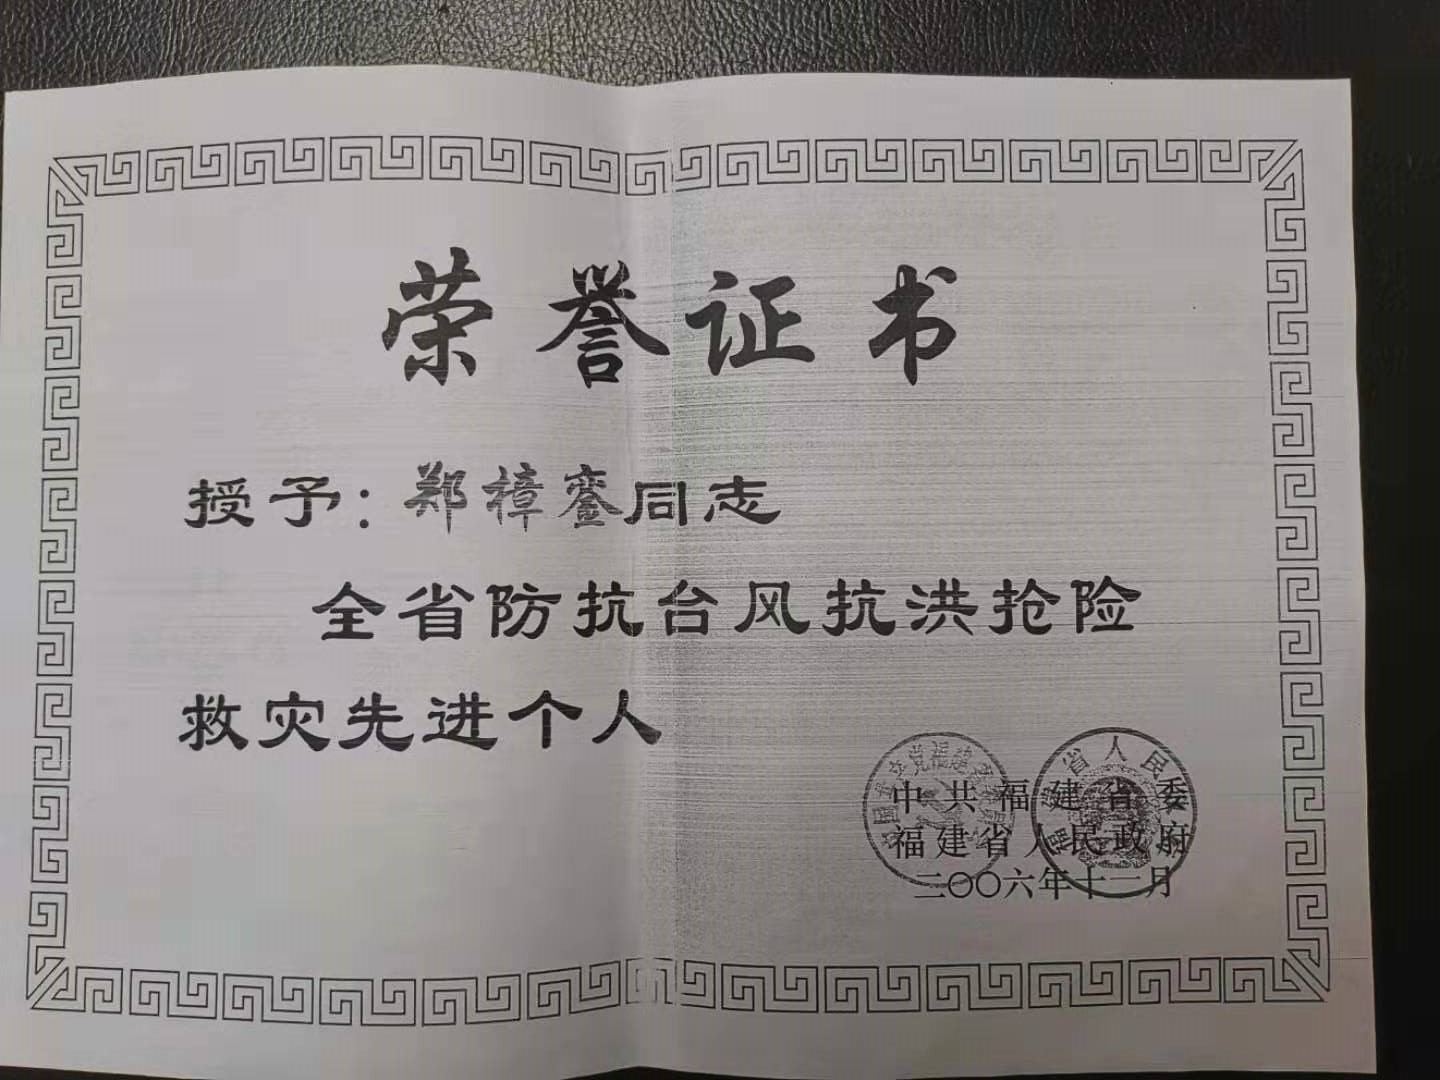 荣誉证书
授予：郑樟銮同志
全省防抗台风抗洪抢险
救灾先进个人
中共福建省委
福建省人民政府
二〇〇六年十一月